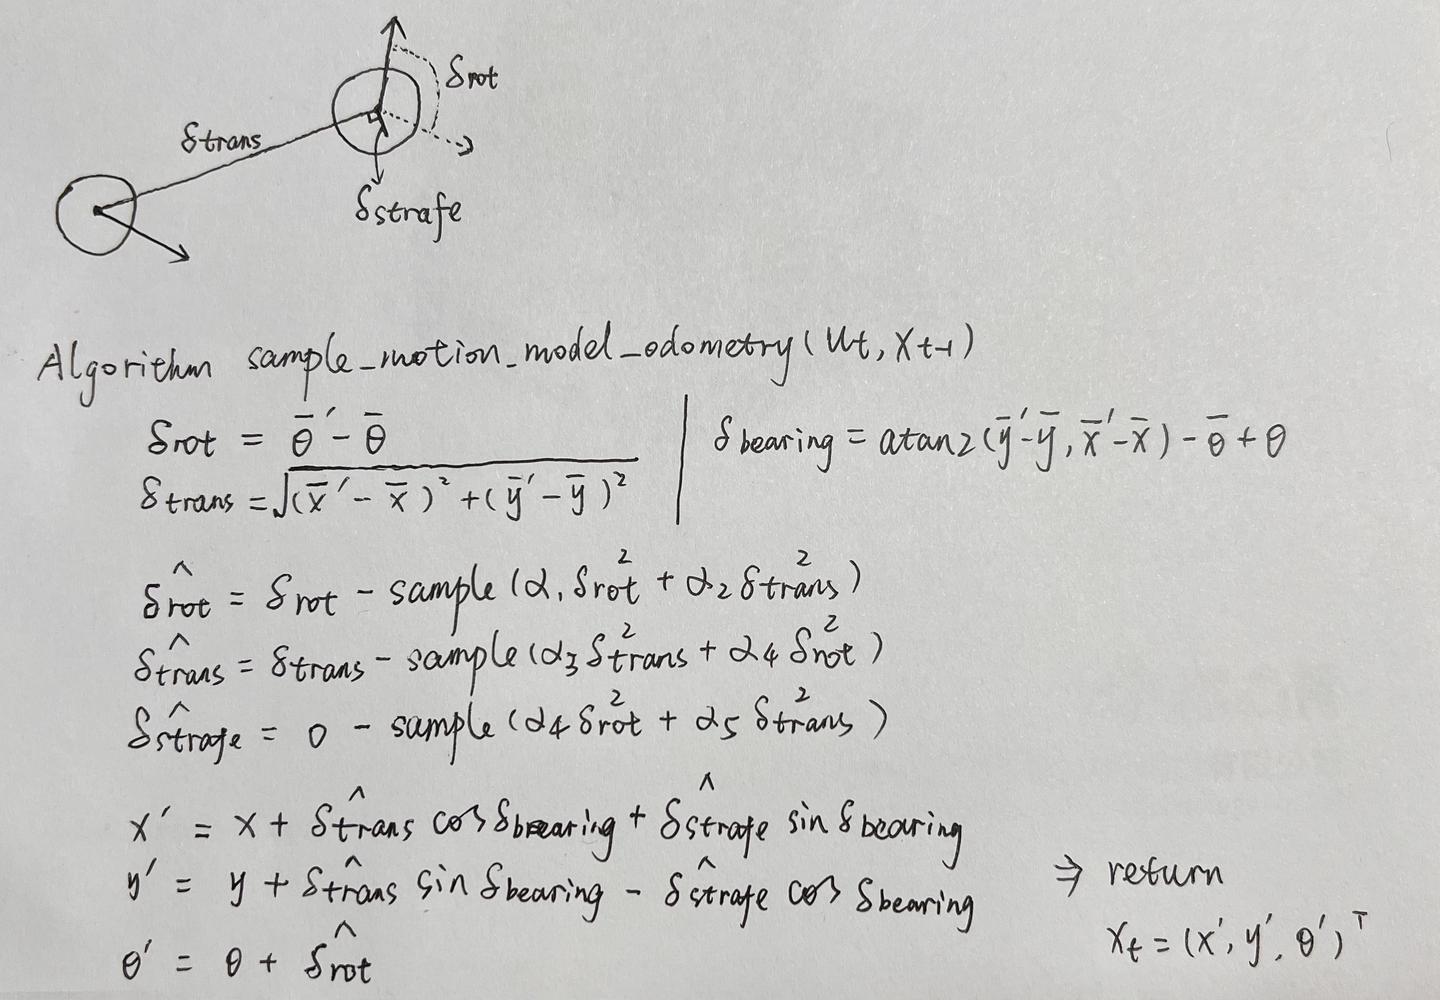 δrot
δtrans
δstrafe
Algorithm sample_motion_model_odometry(ut, xt-1)
δrot = θ̄′ - θ̄
δtrans = √((x̄′ - x̄)² + (ȳ′ - ȳ)²)
δbearing = atan2(ȳ′-ȳ, x̄′-x̄) - θ̄ + θ
δ̂rot = δrot - sample(α₁δrot² + α₂δtrans²)
δ̂trans = δtrans - sample(α₃δtrans² + α₄δrot²)
δ̂strafe = 0 - sample(α₄δrot² + α₅δtrans²)
x′ = x + δ̂trans cosδbearing + δ̂strafe sinδbearing
y′ = y + δ̂trans sinδbearing - δ̂strafe cosδbearing
θ′ = θ + δ̂rot
⇒ return
xt = (x′, y′, θ′)ᵀ